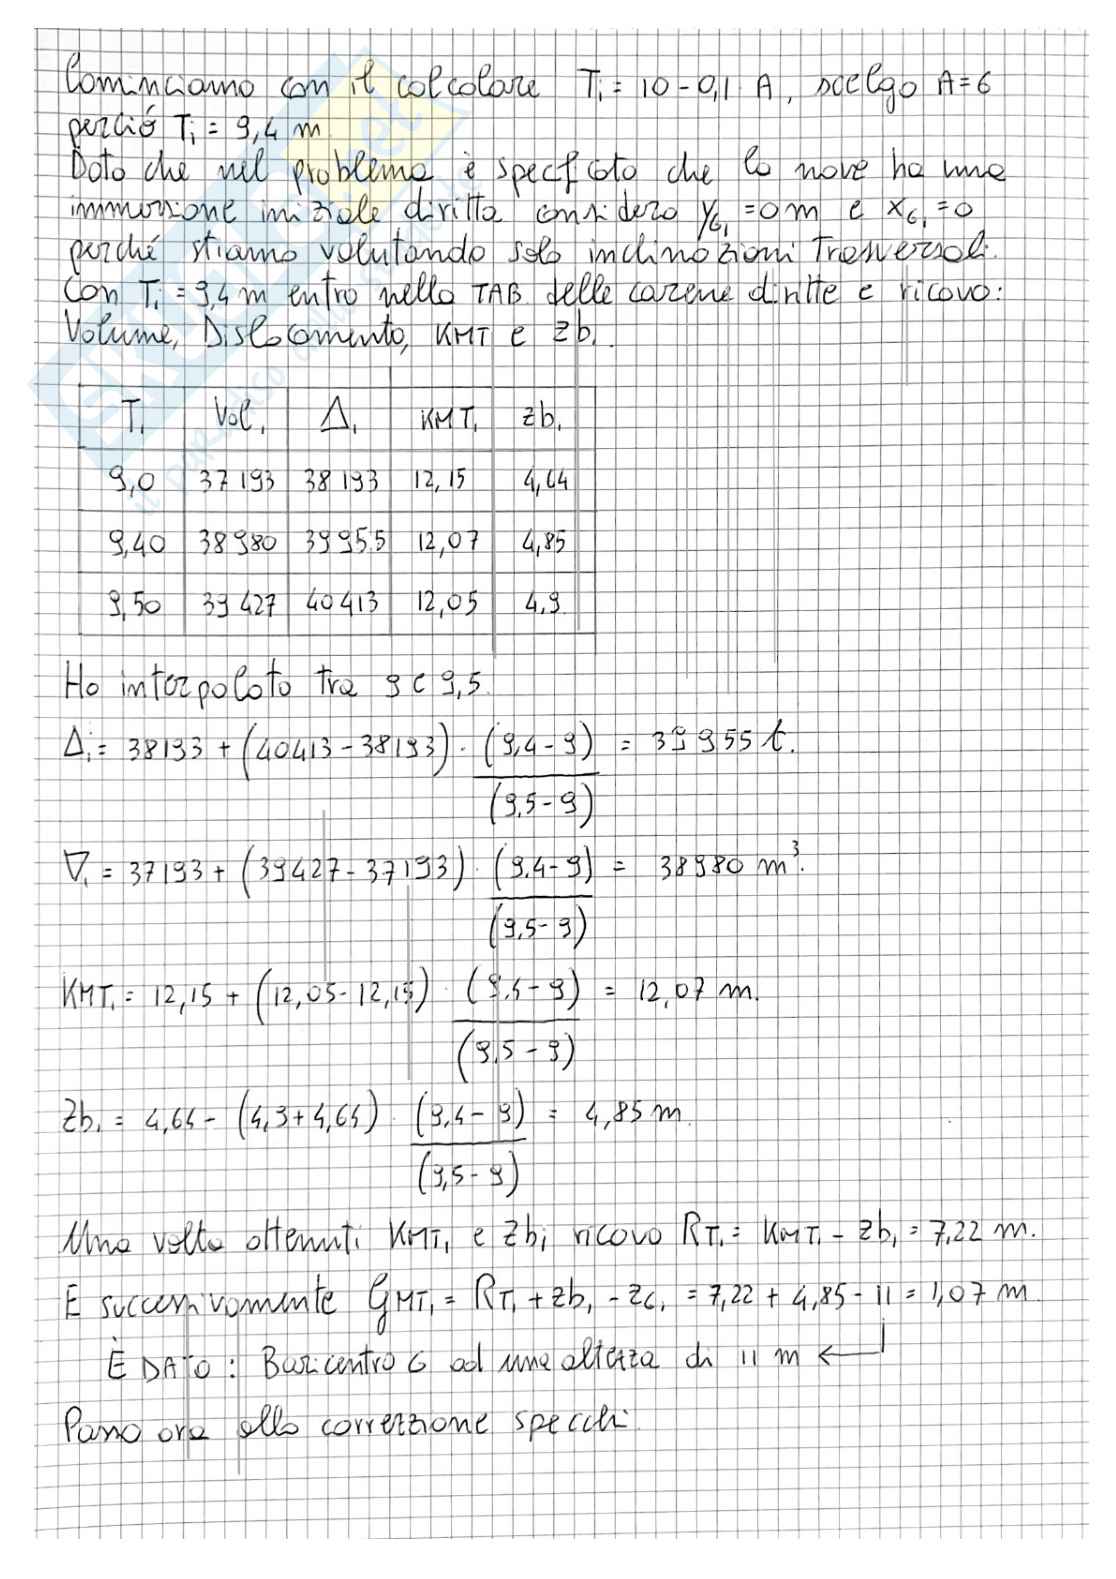 Cominciamo con il calcolare T₁ = 10 - 0,1 · A, scelgo A=6
perciò T₁ = 9,4 m
Dato che nel problema è specificato che la nave ha una
immersione iniziale diritta considero yG₁ = 0 m e xG₁ = 0
perché stiamo valutando solo inclinazioni trasversali.
Con T₁ = 9,4 m entro nella TAB delle carene diritte e ricavo:
Volume, Dislocamento, KMT e zb₁.
T₁ Vol₁ Δ₁ KMT₁ zb₁
9,0 37193 38193 12,15 4,64
9,40 38980 39955 12,07 4,85
9,50 39427 40413 12,05 4,9
Ho interpolato tra 9 e 9,5
Δ₁ = 38193 + (40413 - 38193) · (9,4 - 9) / (9,5 - 9) = 39955 t.
∇₁ = 37193 + (39427 - 37193) · (9,4 - 9) / (9,5 - 9) = 38980 m³.
KMT₁ = 12,15 + (12,05 - 12,15) · (9,4 - 9) / (9,5 - 9) = 12,07 m.
Zb₁ = 4,64 - (4,9 + 4,64) · (9,4 - 9) / (9,5 - 9) = 4,85 m
Una volta ottenuti KMT₁ e Zb₁ ricavo RT₁ = KMT₁ - Zb₁ = 7,22 m.
E successivamente GMT₁ = RT₁ + zb₁ - zG₁ = 7,22 + 4,85 - 11 = 1,07 m
È DATO: Baricentro G ad una altezza di 11 m ←
Passo ora alla correzione specchi.